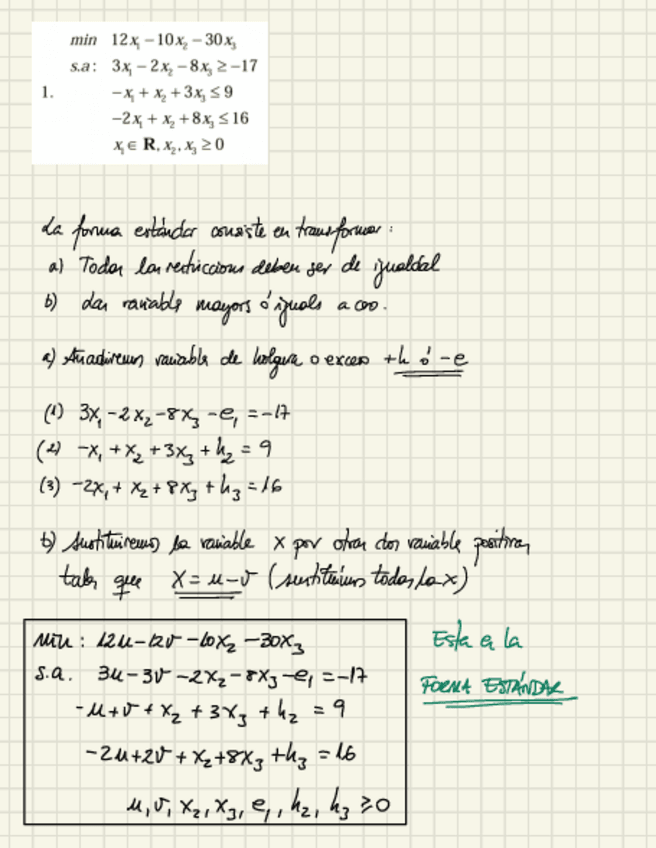 min 12x₁ − 10x₂ − 30x₃
s.a: 3x₁ − 2x₂ − 8x₃ ≥ −17
1. −x₁ + x₂ + 3x₃ ≤ 9
−2x₁ + x₂ + 8x₃ ≤ 16
x₁ ∈ R, x₂, x₃ ≥ 0
La forma estándar consiste en transformar:
a) Todas las restricciones deben ser de igualdad
b) Las variables mayores ó iguales a cero.
a) Añadiremos variables de holgura o exceso +h ó −e
(1) 3x₁ − 2x₂ − 8x₃ − e₁ = −17
(2) −x₁ + x₂ + 3x₃ + h₂ = 9
(3) −2x₁ + x₂ + 8x₃ + h₃ = 16
b) Sustituiremos la variable x por otras dos variables positivas,
tales que x = u − v (sustituimos todas las x)
Min: 12u − 12v − 10x₂ − 30x₃
s.a. 3u − 3v − 2x₂ − 8x₃ − e₁ = −17
−u + v + x₂ + 3x₃ + h₂ = 9
−2u + 2v + x₂ + 8x₃ + h₃ = 16
u, v, x₂, x₃, e₁, h₂, h₃ ≥ 0
Esta es la
FORMA ESTÁNDAR